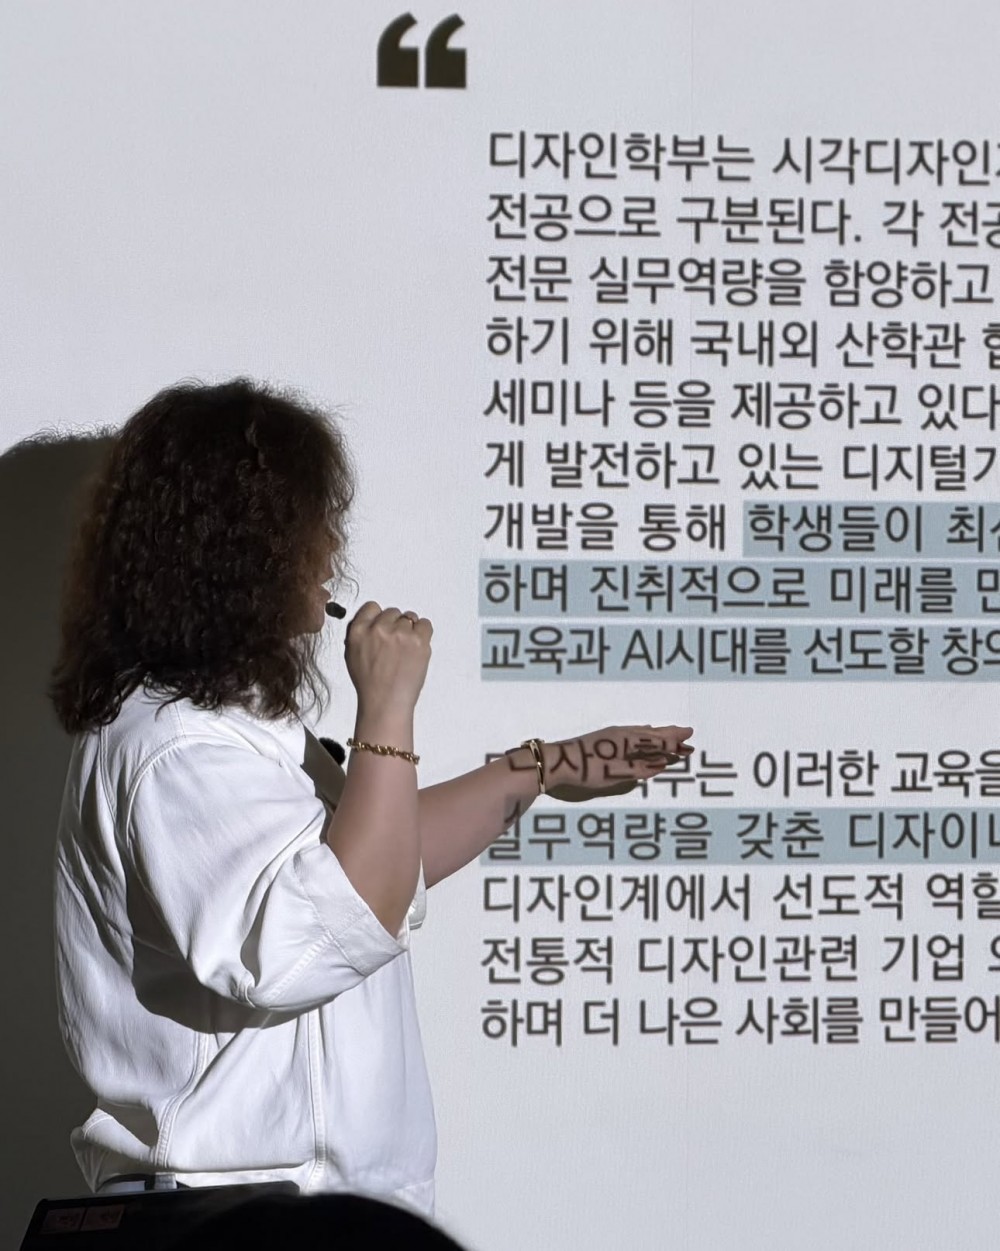 “
디자인학부는 시각디자인
전공으로 구분된다. 각
전문 실무역량을 함양하고
하기 위해 국내외 산학관
세미나 등을 제공하고 있다
게 발전하고 있는 디지털
개발을 통해 학생들이
하며 진취적으로 미래를
교육과 AI시대를 선도할
디자인학부는 이러한 교육을
실무역량을 갖춘
디자인계에서 선도적
전통적 디자인관련 기업
하며 더 나은 사회를 만들어